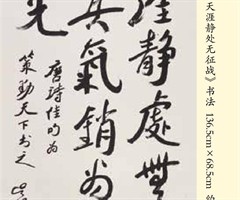 天涯静处无征战》书法 136.5cm×68.5cm 约
涯静處無
兵氣銷為
光
唐詩佳句為
策勤天下書之